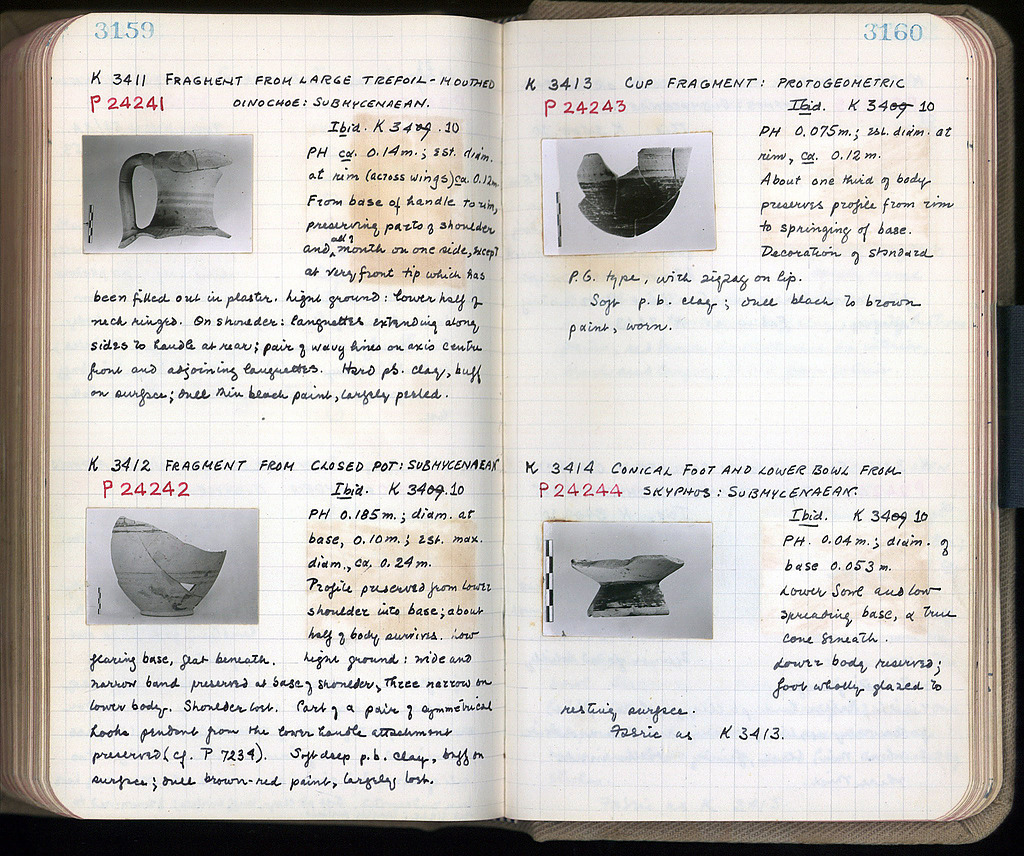 3159
K 3411 FRAGMENT FROM LARGE TREFOIL-MOUTHED
P 24241 OINOCHOE: SUBMYCENAEAN.
Ibid. K 3409.10
PH ca. 0.14m.; est. diam.
at rim (across wings) ca. 0.12m.
From base of handle to rim,
preserving parts of shoulder
and all of mouth on one side, except
at very front tip which has
been filled out in plaster. Light ground: lower half of
neck ringed. On shoulder: languettes extending along
sides to handle at rear; pair of wavy lines on axis centre
front and adjoining languettes. Hard p.b. clay, buff
on surface; dull thin black paint, largely peeled.
K 3412 FRAGMENT FROM CLOSED POT: SUBMYCENAEAN
P 24242
Ibid. K 3409.10
PH 0.185m.; diam. at
base, 0.10m.; est. max.
diam., ca. 0.24m.
Profile preserved from lower
shoulder into base; about
half of body survives. Low
flaring base, flat beneath. Light ground: wide and
narrow band preserved at base of shoulder; three narrow on
lower body. Shoulder lost. Part of a pair of symmetrical
hooks pendent from the lower handle attachment
preserved (cf. P 7234). Soft deep p.b. clay, buff on
surface; dull brown-red paint, largely lost.
3160
K 3413 CUP FRAGMENT: PROTOGEOMETRIC
P 24243
Ibid. K 3409 10
PH 0.075m.; est. diam. at
rim, ca. 0.12m.
About one third of body
preserves profile from rim
to springing of base.
Decoration of standard
P.G. type, with zigzag on lip.
Soft p.b. clay; dull black to brown
paint, worn.
K 3414 CONICAL FOOT AND LOWER BOWL FROM
P 24244 SKYPHOS: SUBMYCENAEAN.
Ibid. K 3409 10
PH. 0.04m.; diam. of
base 0.053m.
Lower bowl and low
spreading base, a true
cone beneath.
Lower body reserved;
foot wholly glazed to
resting surface.
Fabric as K 3413.